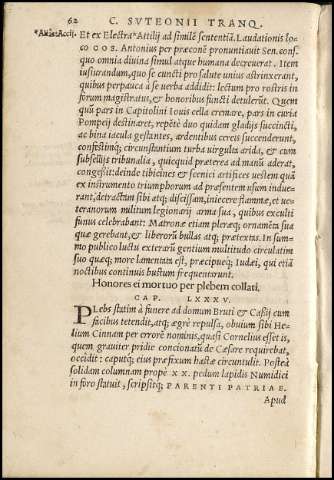 62 C. SVTEONII TRANQ.
*Aliàs Accij.
Et ex Electra *Attilij ad similẽ sententiã. Laudationis lo-
co COS. Antonius per præconẽ pronuntiauit Sen. conf.
quo omnia diuina simul atque humana decreuerat. Item
iusiurandum, quo se cuncti pro salute unius astrinxerant,
quibus perpauca à se uerba addidit: lectum pro rostris in
forum magistratus, & honoribus functi detulerũt. Quem
quũ pars in Capitolini Iouis cella cremare, pars in curia
Pompeij destinaret, repẽte duo quidam gladijs succincti,
ac bina iacula gestantes, ardentibus cereis succenderunt,
confestimq; circunstantium turba uirgulta arida, & cum
subsellijs tribunalia, quicquid præterea ad manũ aderat,
congessit: deinde tibicines & scenici artifices uestem quã
ex instrumento triumphorum ad præsentem usum indue-
rant, detractam sibi atq; discissam, iniecere flammæ, et ue-
teranorum militum legionarij arma sua, quibus exculti
funus celebrabant: Matronæ etiam pleræq; ornamẽta sua
quæ gerebant, & liberorũ bullas atq; prætextas. In sum-
mo publico luctu exterarũ gentium multitudo circulatim
suo quæq; more lamentata est, præcipueq; Iudæi, qui etiã
noctibus continuis bustum frequentarunt.
Honores ei mortuo per plebem collati.
CAP. LXXXV.
PLebs statim à funere ad domum Bruti & Cassij cum
facibus tetendit, atq; ægrè repulsa, obuium sibi He-
lium Cinnam per errorẽ nominis, quasi Cornelius esset is,
quem grauiter pridie concionatũ de Cæsare requirebat,
occidit: caputq; eius præfixum hastæ circuntulit. Posteà
solidam columnam propè XX. pedum lapidis Numidici
in foro statuit, scripsitq; PARENTI PATRIAE.
Apud